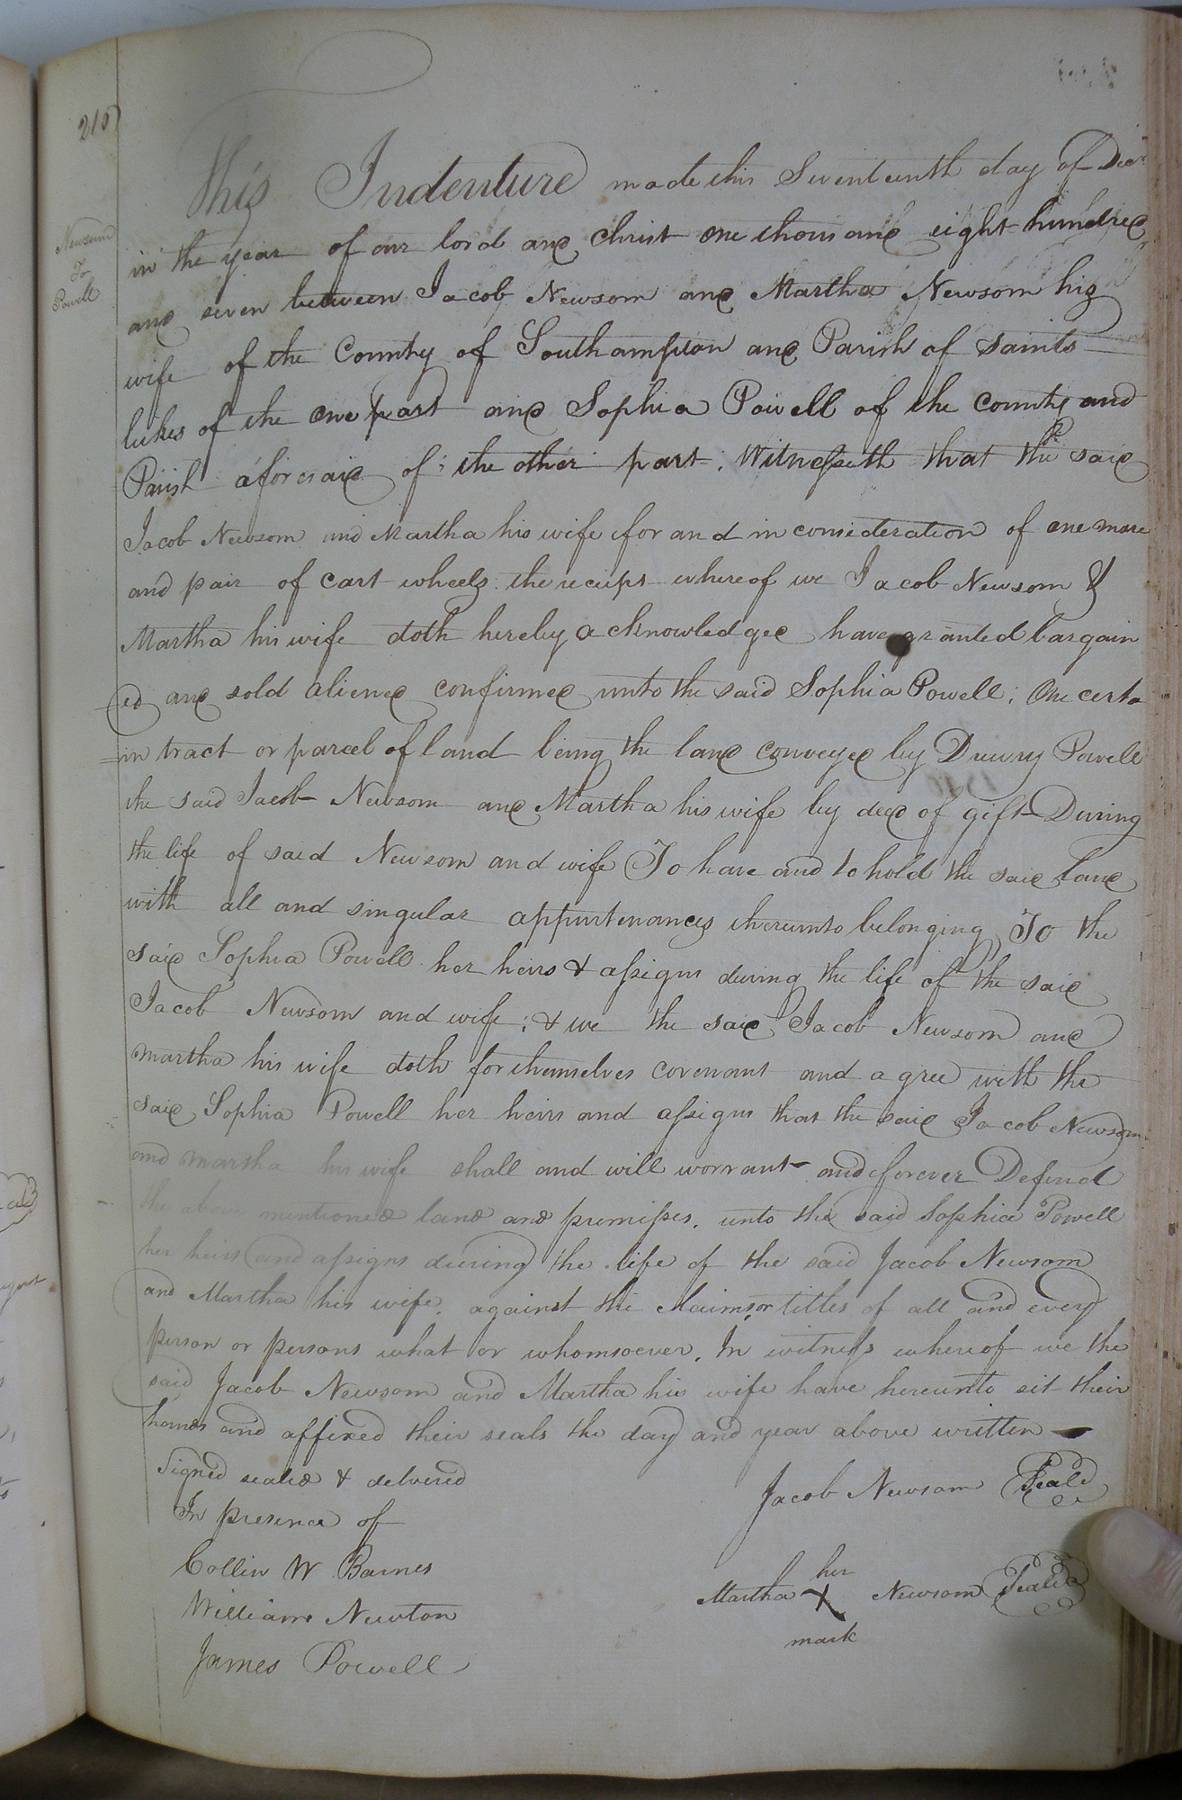 210
Newsum
To
Powell
This Indenture made this Seventeenth day of Decr
in the year of our lord and christ one thousand eight hundred
and seven between Jacob Newsom and Martha Newsom his
wife of the County of Southampton and Parish of Saints
lukes of the one part and Sophia Powell of the county and
Parish aforesaid of the other part; Witnesseth that the said
Jacob Newsom and Martha his wife for and in consideration of one mare
and pair of cart wheels the recept whereof we Jacob Newsom &
Martha his wife doth hereby acknowledged have granted bargain
ed and sold aliened confirmed unto the said Sophia Powell; One certa
=in tract or parcel of land being the land conveyed by Drewry Powell
the said Jacob Newsom and Martha his wife by deed of gift During
the life of said Newsom and wife To have and to hold the said land
with all and singular appurtenances thereunto belonging To the
said Sophia Powell her heirs & assigns during the life of the said
Jacob Newsom and wife; & we the said Jacob Newsom and
martha his wife doth for themselves covenant and agree with the
said Sophia Powell her heirs and assigns that the said Jacob Newsom
and martha his wife shall and will worrant and forever Defend
the above mentioned land and premises. unto the said Sophia Powell
her heirs and assigns during the life of the said Jacob Newsom
and Martha his wife, against the Claims or titles of all and every
person or persons what or whomsoever. In witness whereof we the
said Jacob Newsom and Martha his wife have hereunto sit their
hands and affixed their seals the day and year above written
Signed sealed & delivered
In presence of
Jacob Newsom Seald
Collin W Barnes
William Newton
James Powell
her
Martha X Newsom Seald
mark